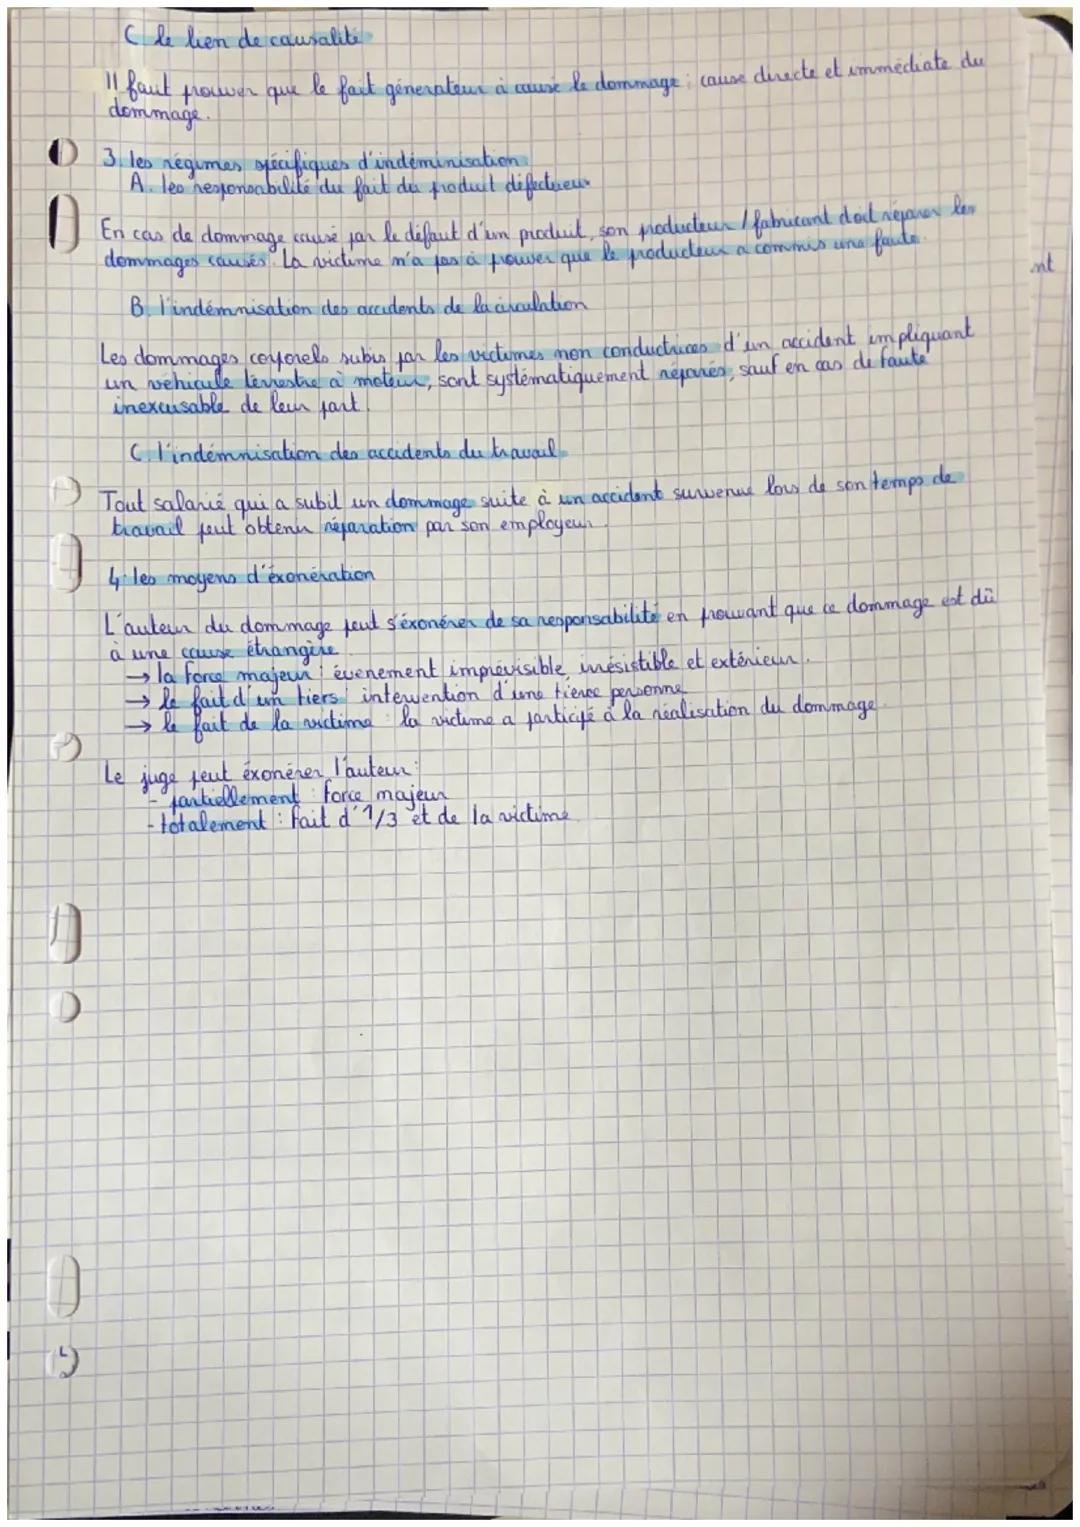 C. le lien de causalité
Il faut prouver que le fait générateur à causé le dommage : cause directe et immédiate du
dommage.
3. les régimes spécifiques d'indéminisation
A. les responsabilité du fait du produit défectueux
En cas de dommage causé par le défaut d'un produit, son producteur / fabricant doit réparer les
dommages causés. La victime n'a pas à prouver que le producteur a commis une faute.
nt
B. l'indémnisation des accidents de la circulation
Les dommages corporels subis par les victimes non conductrices d'un accident impliquant
un véhicule terrestre à moteur, sont systématiquement réparés, sauf en cas de faute
inexcusable de leur part.
C. l'indémnisation des accidents du travail
Tout salarié qui a subil un dommage suite à un accident survenue lors de son temps de
travail peut obtenir réparation par son employeur.
4. les moyens d'éxonération
L'auteur du dommage peut s'éxonérer de sa responsabilité en prouvant que ce dommage est dû
à une cause étrangère.
→ la force majeur : évenement imprévisible, irrésistible et extérieur.
→ le fait d'un tiers : intervention d'une tierce personne
→ le fait de la victime : la victime a participé à la réalisation du dommage.
Le juge peut éxonérer l'auteur :
- partiellement : force majeur
- totalement : fait d'1/3 et de la victime